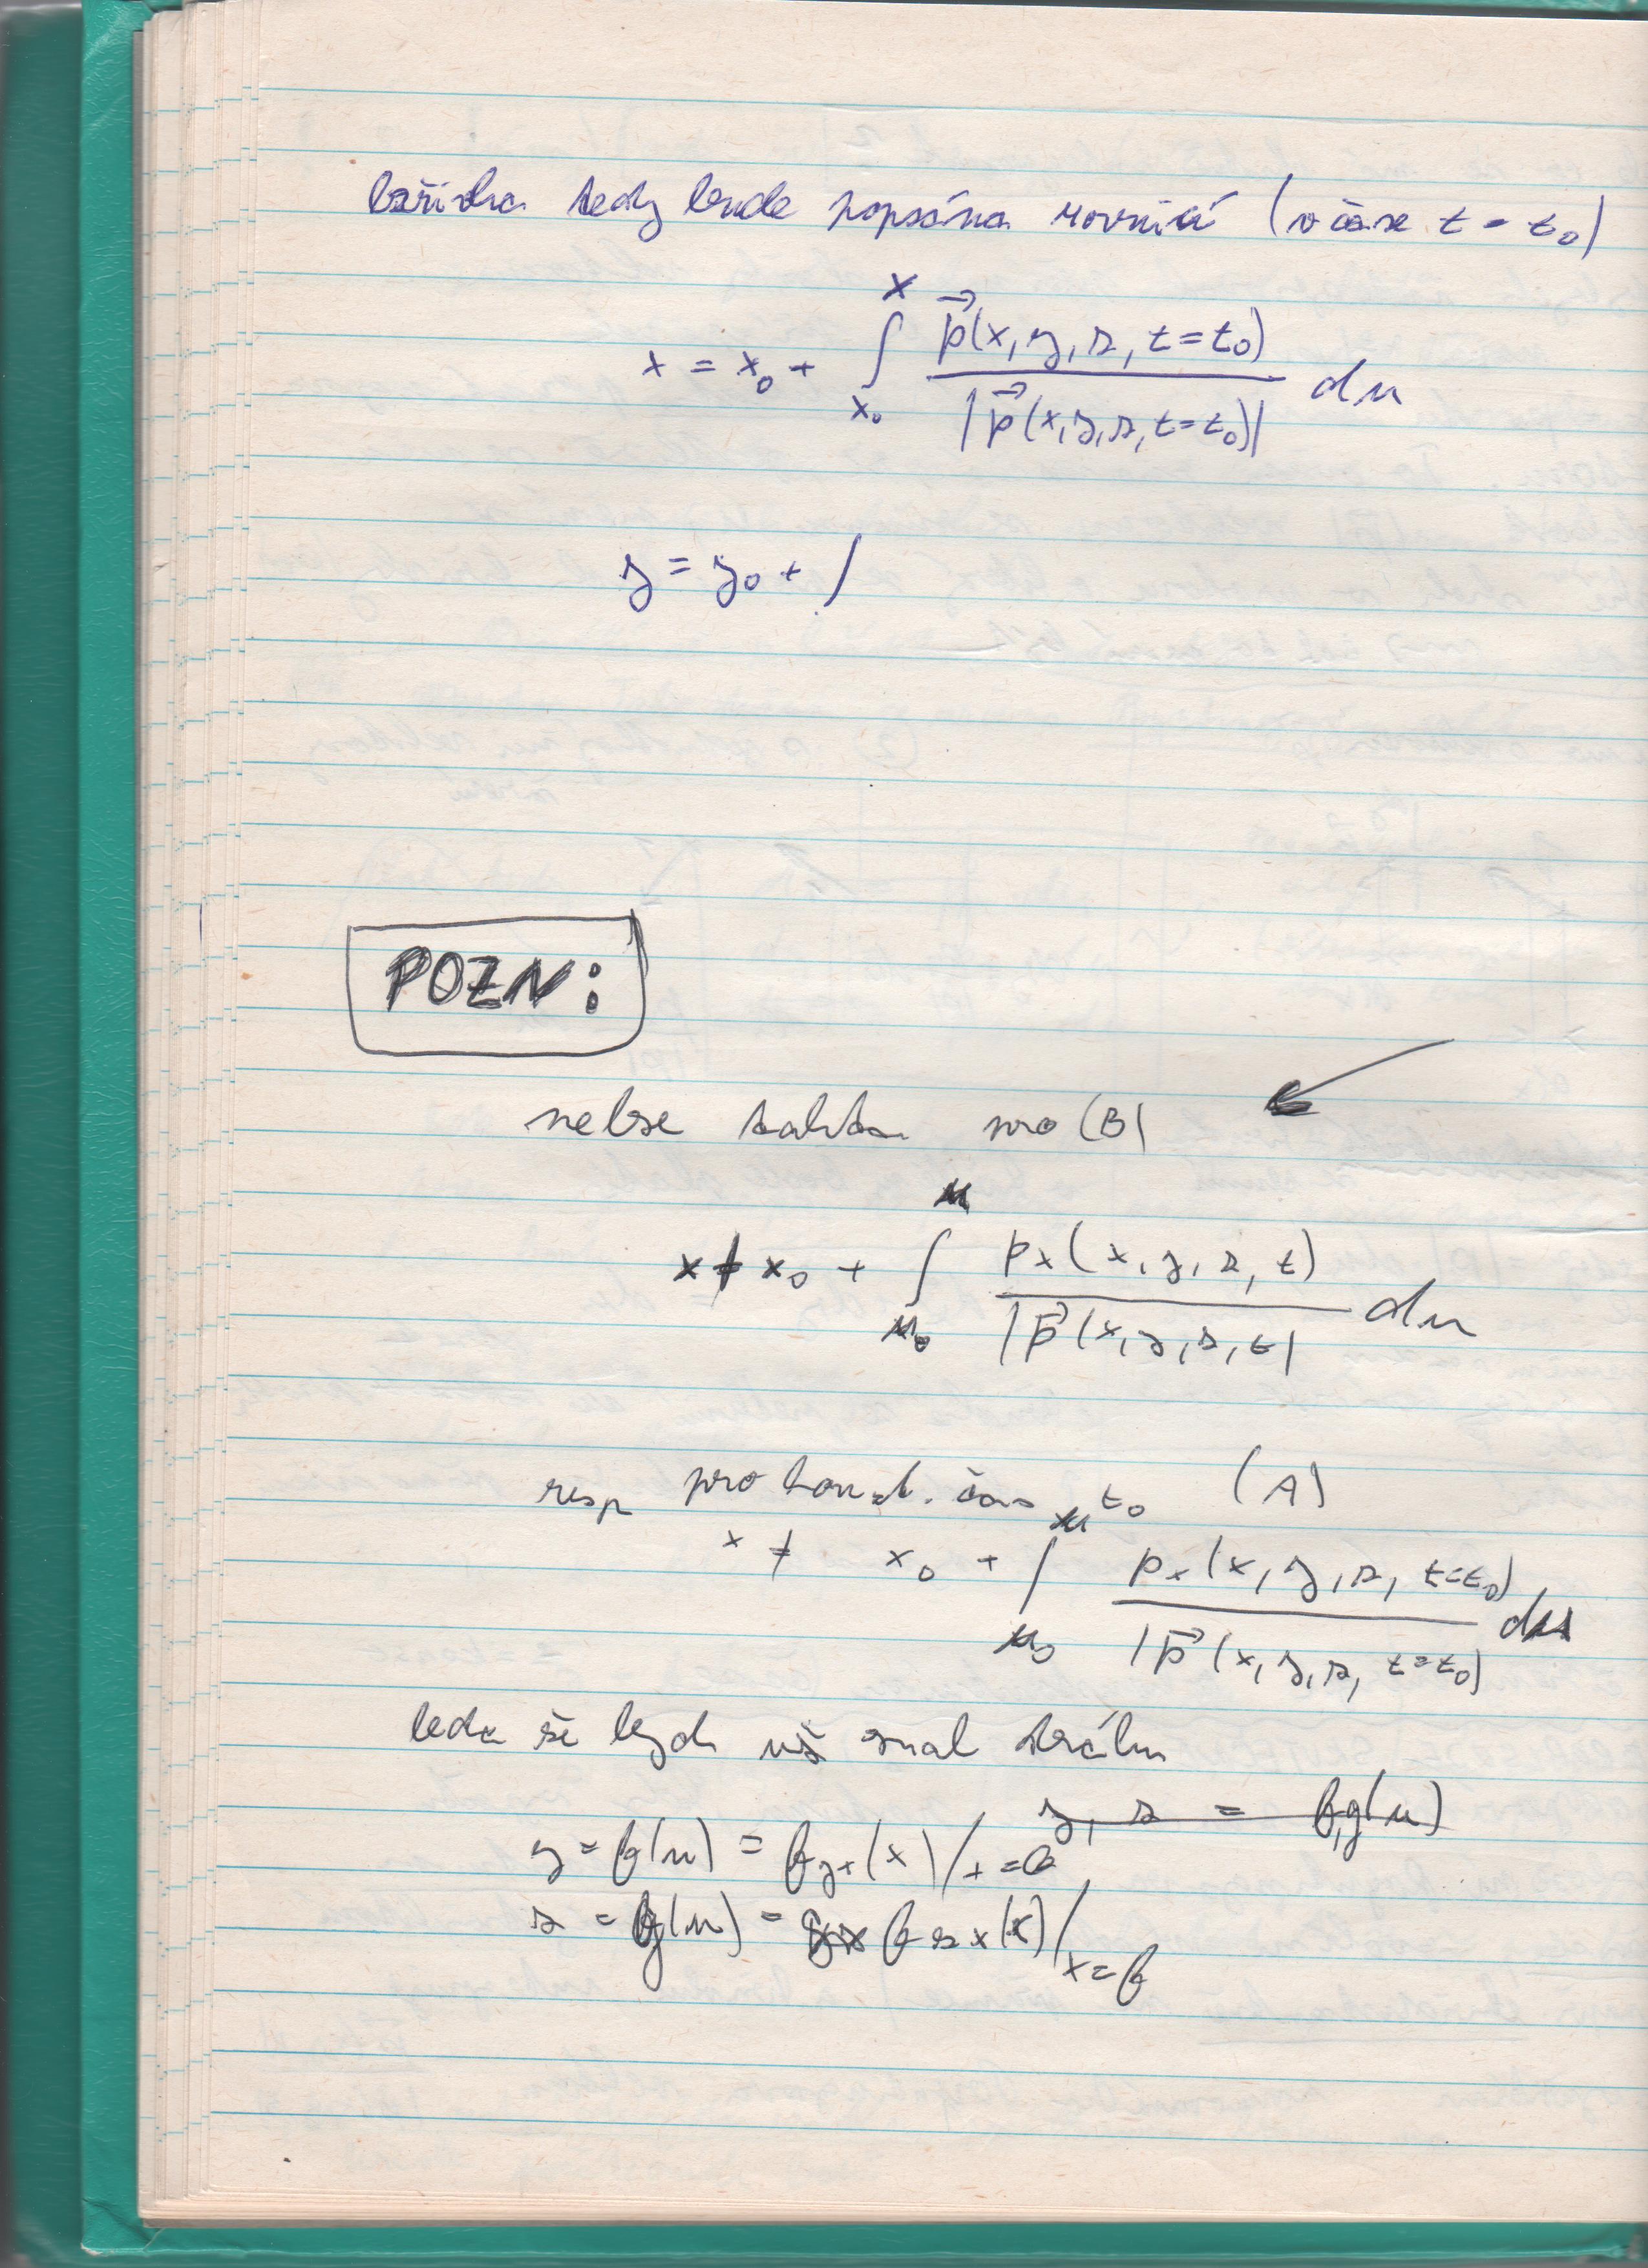 křivka tedy bude popsána rovnicí (v čase t = t₀)
x = x₀ + ∫_{x₀}^{x} \frac{\vec{p}(x, y, z, t=t₀)}{|\vec{p}(x, y, z, t=t₀)|} du
y = y₀ + ∫
POZN:
nelze takto pro (B)
x ≠ x₀ + ∫_{u₀}^{u} \frac{p_x(x, y, z, t)}{|\vec{p}(x, y, z, t|} du
resp pro konst. čas t₀ (A)
x ≠ x₀ + ∫_{u₀}^{u} \frac{p_x(x, y, z, t=t₀)}{|\vec{p}(x, y, z, t=t₀)} du
leda že bych už znal dráhu
y, z = f,g(u)
y = f(u) = f_{yx}(x)/_{x=}
z = g(u) = f_{zx}(x)/_{x=f}